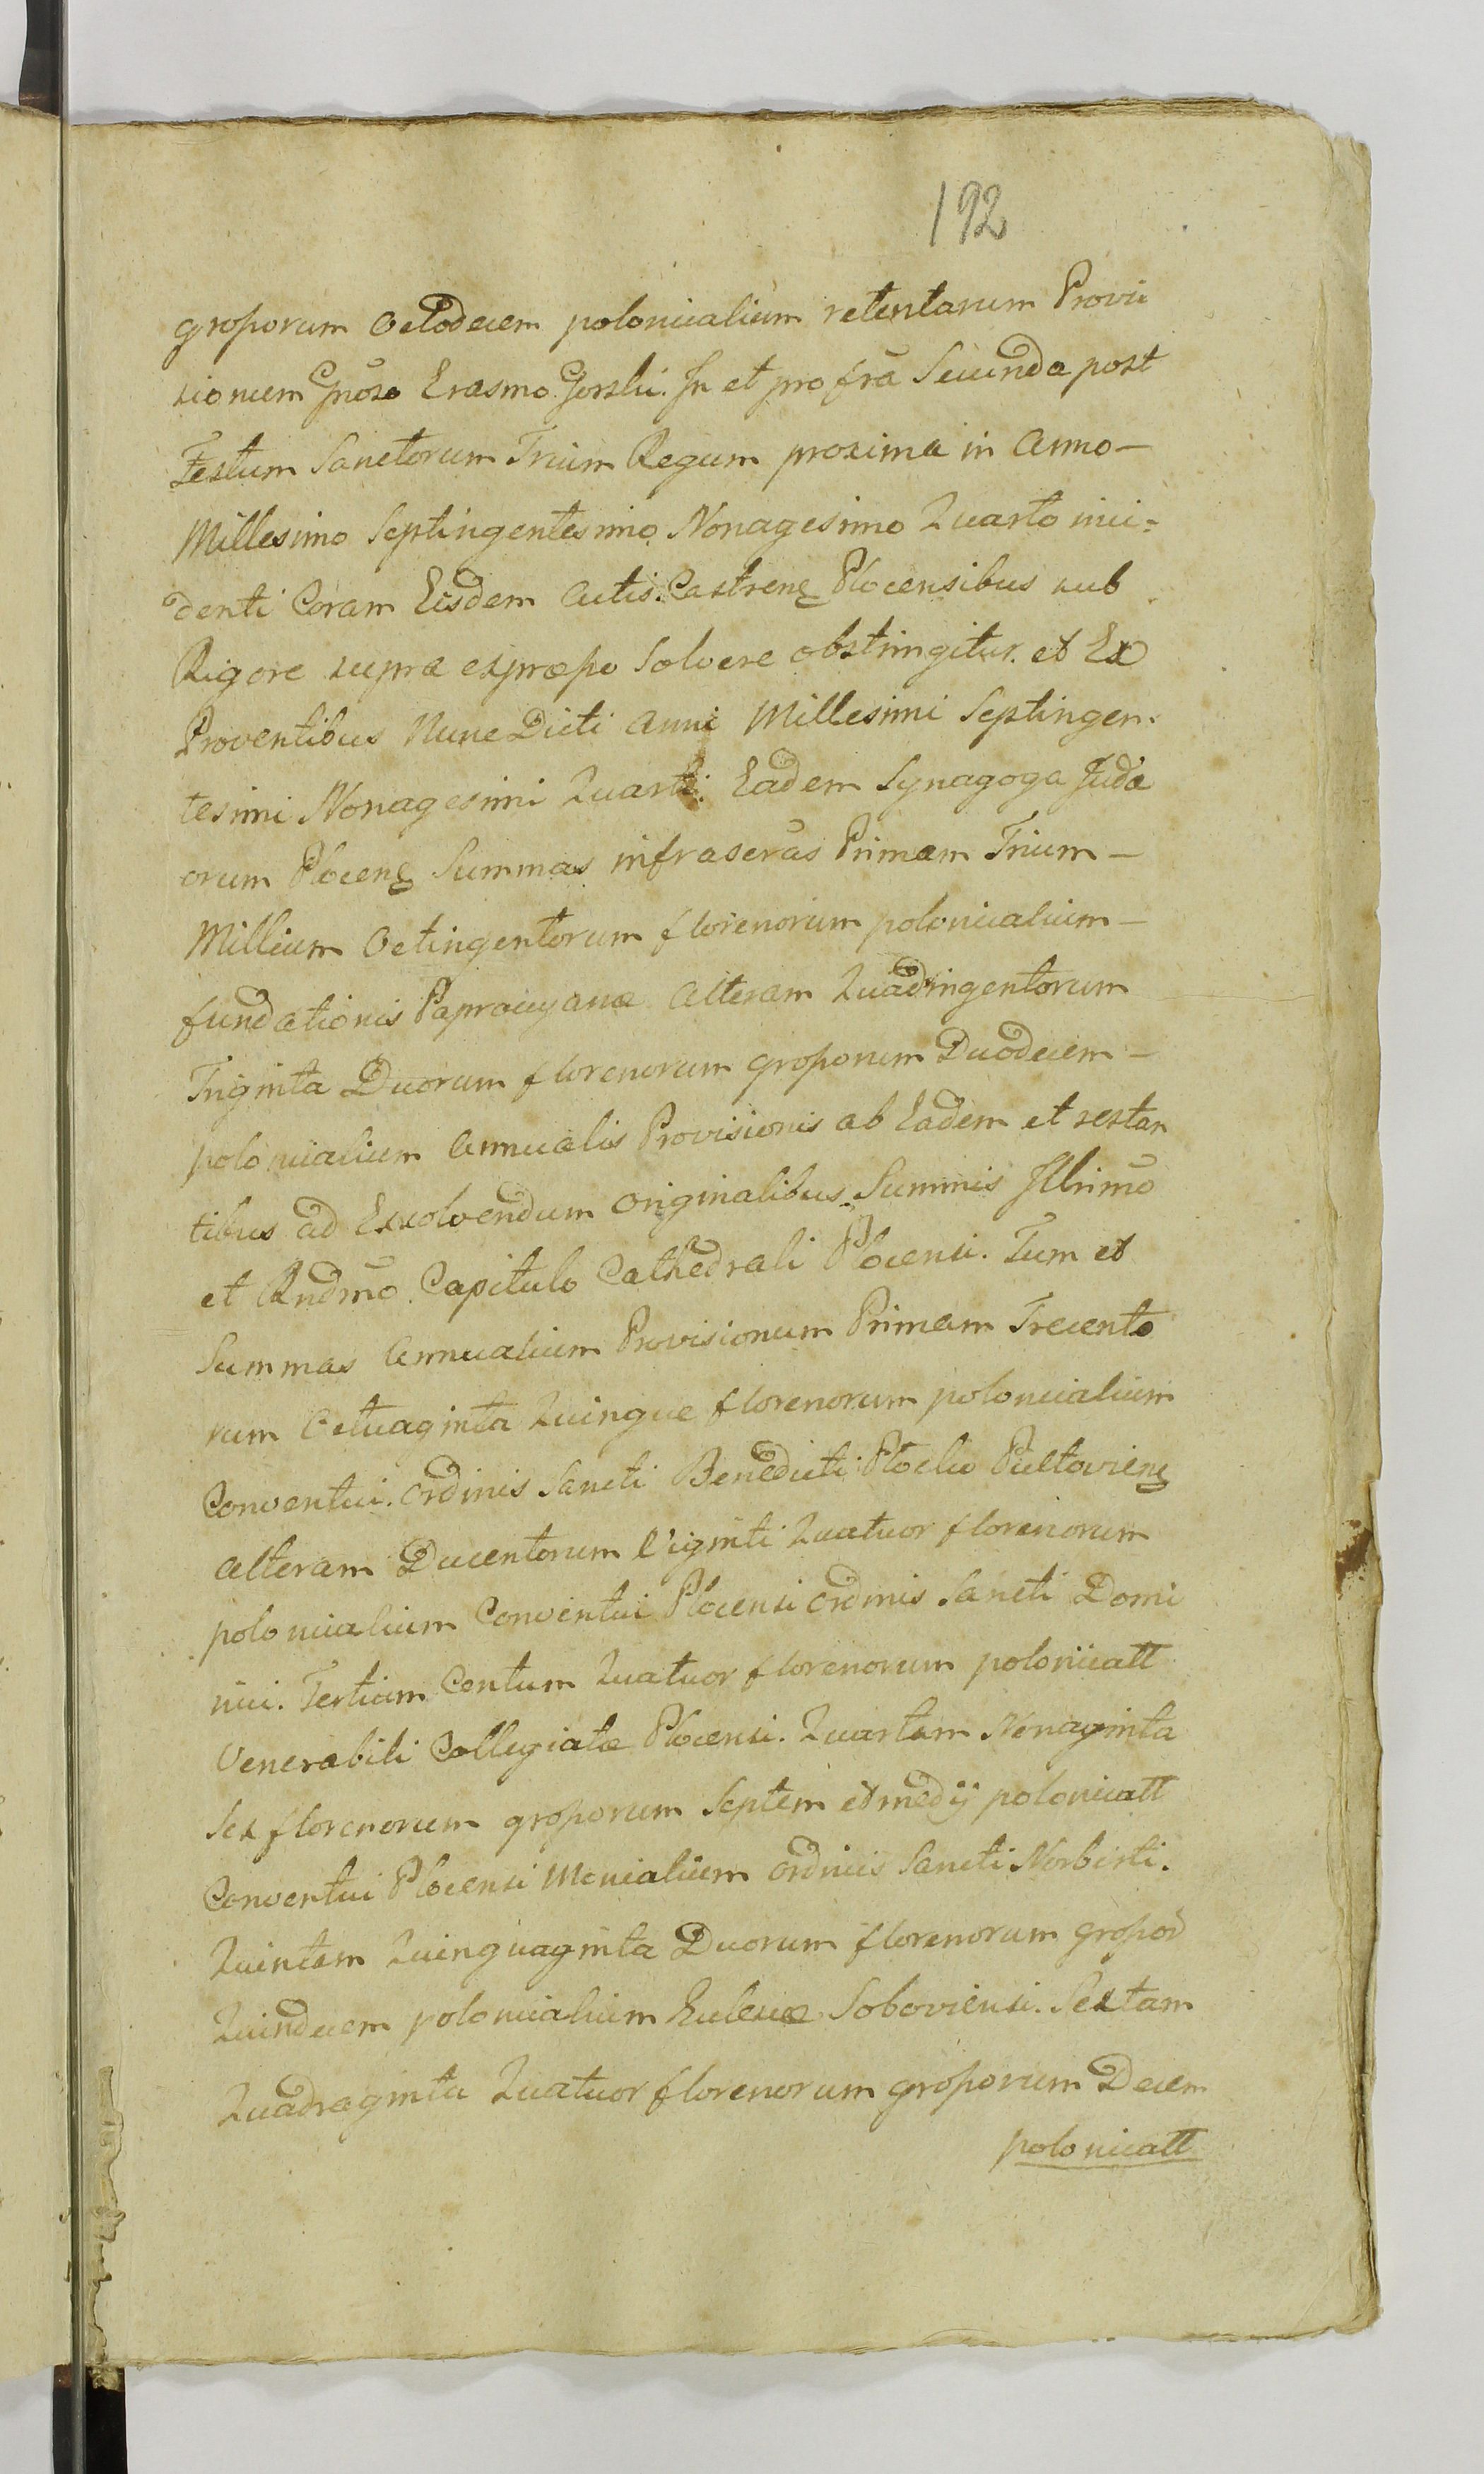 192
grossorum Octodecem polonicalium retentarum Provi
sionem Gnoso Erasmo Gorski. In et pro fra Secunda post
Festum Sanctorum Trium Regum proxima in Anno –
Millesimo Septingentesimo Nonagesimo Quarto inci=
denti Coram Eisdem Actis Castrens Plocensibus sub
Rigore supra expresso Solvere obstringitur. et Ex
Proventibus Nunc Dicti Anni Millesimi Septingen.
tesimi Nonagesimi Quarti Eadem Synagoga Judæ
orum Plocens Summas infrascras Primam Trium –
Millium Octingentorum florenorum polonicalium –
fundationis Paprocyanæ Alteram Quadringentorum
Triginta Duorum florenorum grossorum Duodecem –
polonicalium Annualis Provisionis ab Eadem et restan
tibus ad Exsolvendum Originalibus Summis Illrimo
et Rndmo Capitulo Cathedrali Plocensi. Tum et
Summas Annualium Provisionum Primam Trecento
rum Octuaginta Quinque florenorum polonicalium
Conventui Ordinis Sancti Benedicti Plocko Pultoviens
Alteram Ducentorum Viginti Quatuor florenorum
polonicalium Conventui Plocensi Ordinis Sancti Domi
nici. Tertiam Centum Quatuor florenorum polonicall
Venerabili Collegiatæ Plocensi. Quartam Nonaginta
Sex florenorum grossorum Septem et medij polonicall
Conventui Plocensi Monialium Ordinis Sancti Norberti.
Quintam Quinquaginta Duorum florenorum grossor
Quindecem polonicalium Eclesiæ Soboviensi. Sextam
Quadraginta Quatuor florenorum grossorum Decem
polonicall